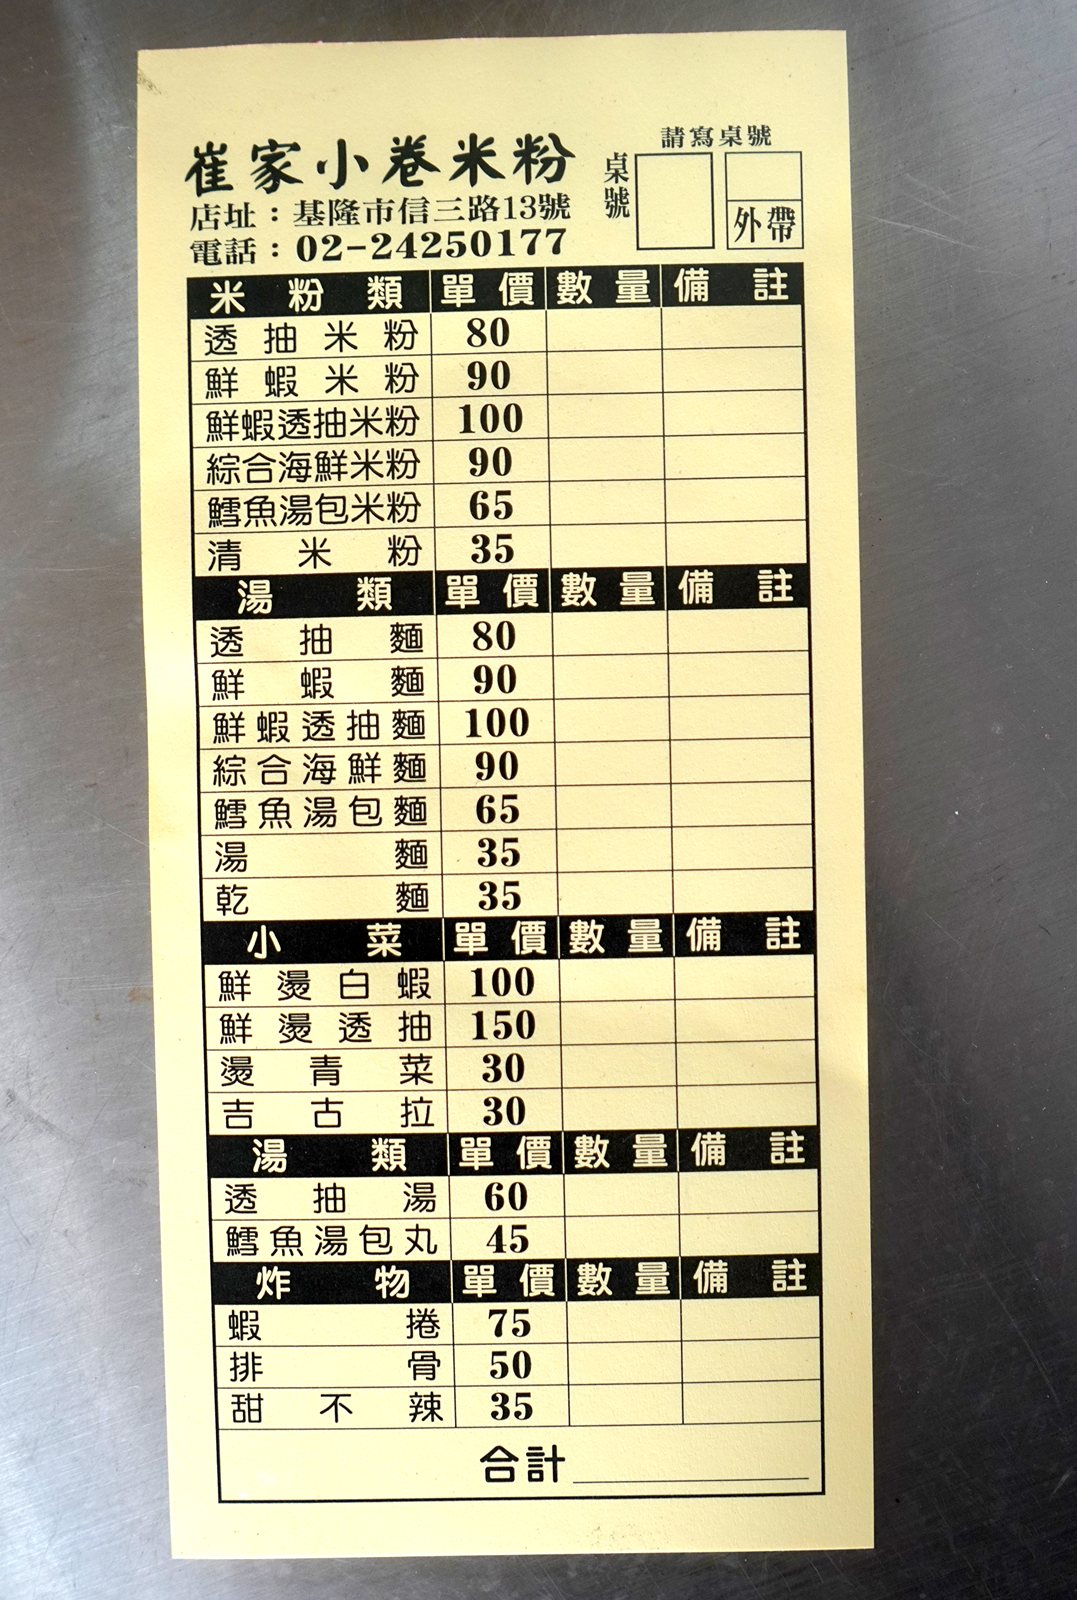 崔家小卷米粉
店址：基隆市信三路13號
電話：02-24250177
請寫桌號
桌號
外帶
米粉類 單價 數量 備註
透抽米粉 80
鮮蝦米粉 90
鮮蝦透抽米粉 100
綜合海鮮米粉 90
鱈魚湯包米粉 65
清米粉 35
湯類 單價 數量 備註
透抽麵 80
鮮蝦麵 90
鮮蝦透抽麵 100
綜合海鮮麵 90
鱈魚湯包麵 65
湯麵 35
乾麵 35
小菜 單價 數量 備註
鮮燙白蝦 100
鮮燙透抽 150
燙青菜 30
吉古拉 30
湯類 單價 數量 備註
透抽湯 60
鱈魚湯包丸 45
炸物 單價 數量 備註
蝦捲 75
排骨 50
甜不辣 35
合計